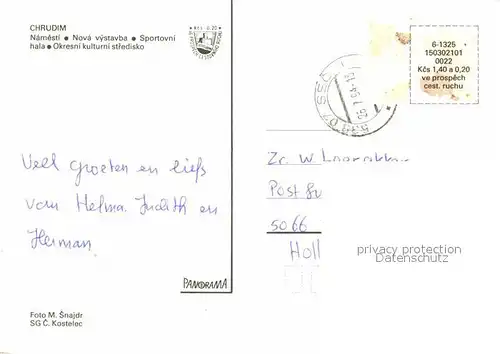 CHRUDIM
Náměstí • Nová výstavba • Sportovní
hala • Okresní kulturní středisko
6-1325
150302101
0022
Kčs 1,40 a 0,20
ve prospěch
cest. ruchu
Veel groeten en liefs
van Helma. Judith en
Herman
Post
5066
Holl
privacy protection
Datenschutz
PANORAMA
Foto M. Šnajdr
SG Č. Kostelec